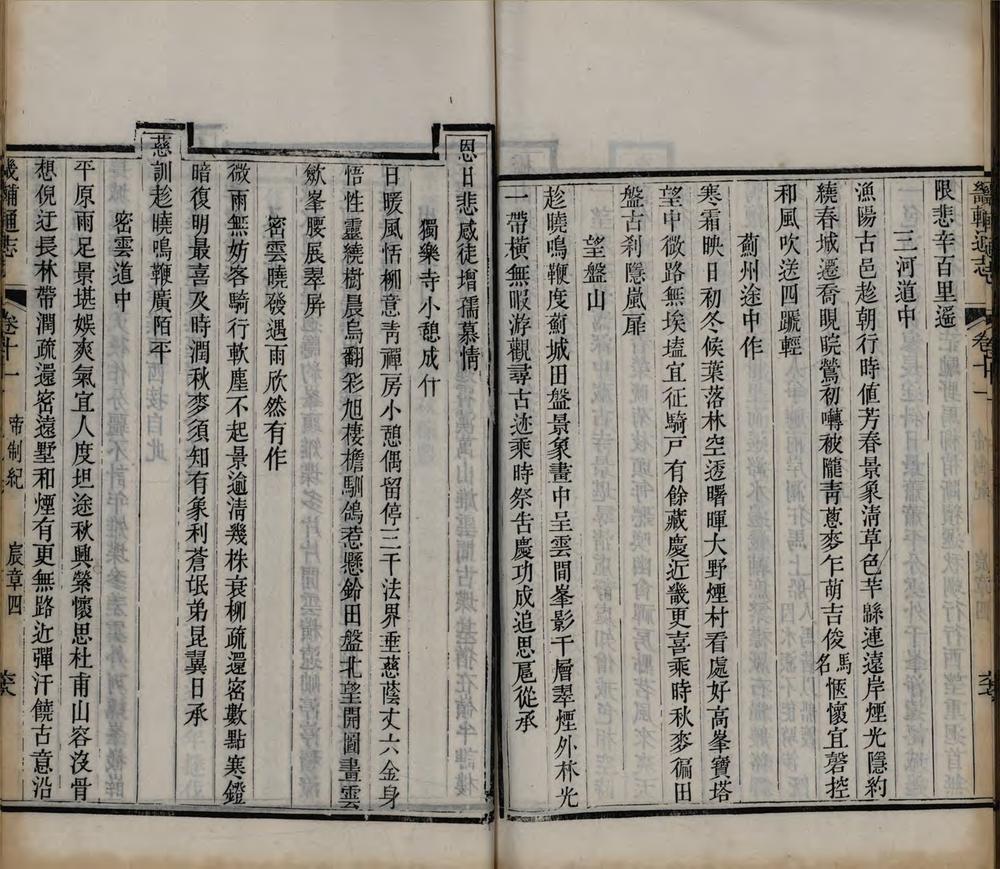 畿輔通志 卷十一
限悲辛百里遥
三河道中
漁陽古邑趁朝行時值芳春景象淸草色芊緜連遠岸煙光隱約
繞春城遷喬睍睆鶯初囀被隴靑蔥麥乍萌吉俊馬名愜懷宜磬控
和風吹送四蹏輕
薊州途中作
寒霜映日初冬候葉落林空透曙暉大野煙村看處好高峯寶塔
望中微路無埃𡏖宜征騎戸有餘藏慶近畿更喜乘時秋麥徧田
盤古刹隱嵐扉
望盤山
趁曉鳴鞭度薊城田盤景象畫中呈雲間峯影千層翠煙外林光
一帶橫無暇游觀尋古迹乘時祭告慶功成追思扈從承
恩日悲感徒增孺慕情
獨樂寺小憩成什
日暖風恬柳意靑禪房小憩偶留停三千法界垂慈蔭丈六金身
悟性靈繞樹晨烏翻彩旭棲檐馴鴿惹懸鈴田盤北望開圖畫雲
歛峯腰展翠屏
密雲曉發遇雨欣然有作
微雨無妨客騎行軟塵不起景逾淸幾株衰柳疏還密數點寒鐙
暗復明最喜及時潤秋麥須知有象利蒼氓弟昆翼日承
慈訓趁曉鳴鞭廣陌平
密雲道中
平原雨足景堪娛爽氣宜人度坦途秋興縈懷思杜甫山容沒骨
想倪迂長林帶潤疏還密遠墅和煙有更無路近彈汗饒古意沿
畿輔通志 卷十一 帝制紀 宸章四